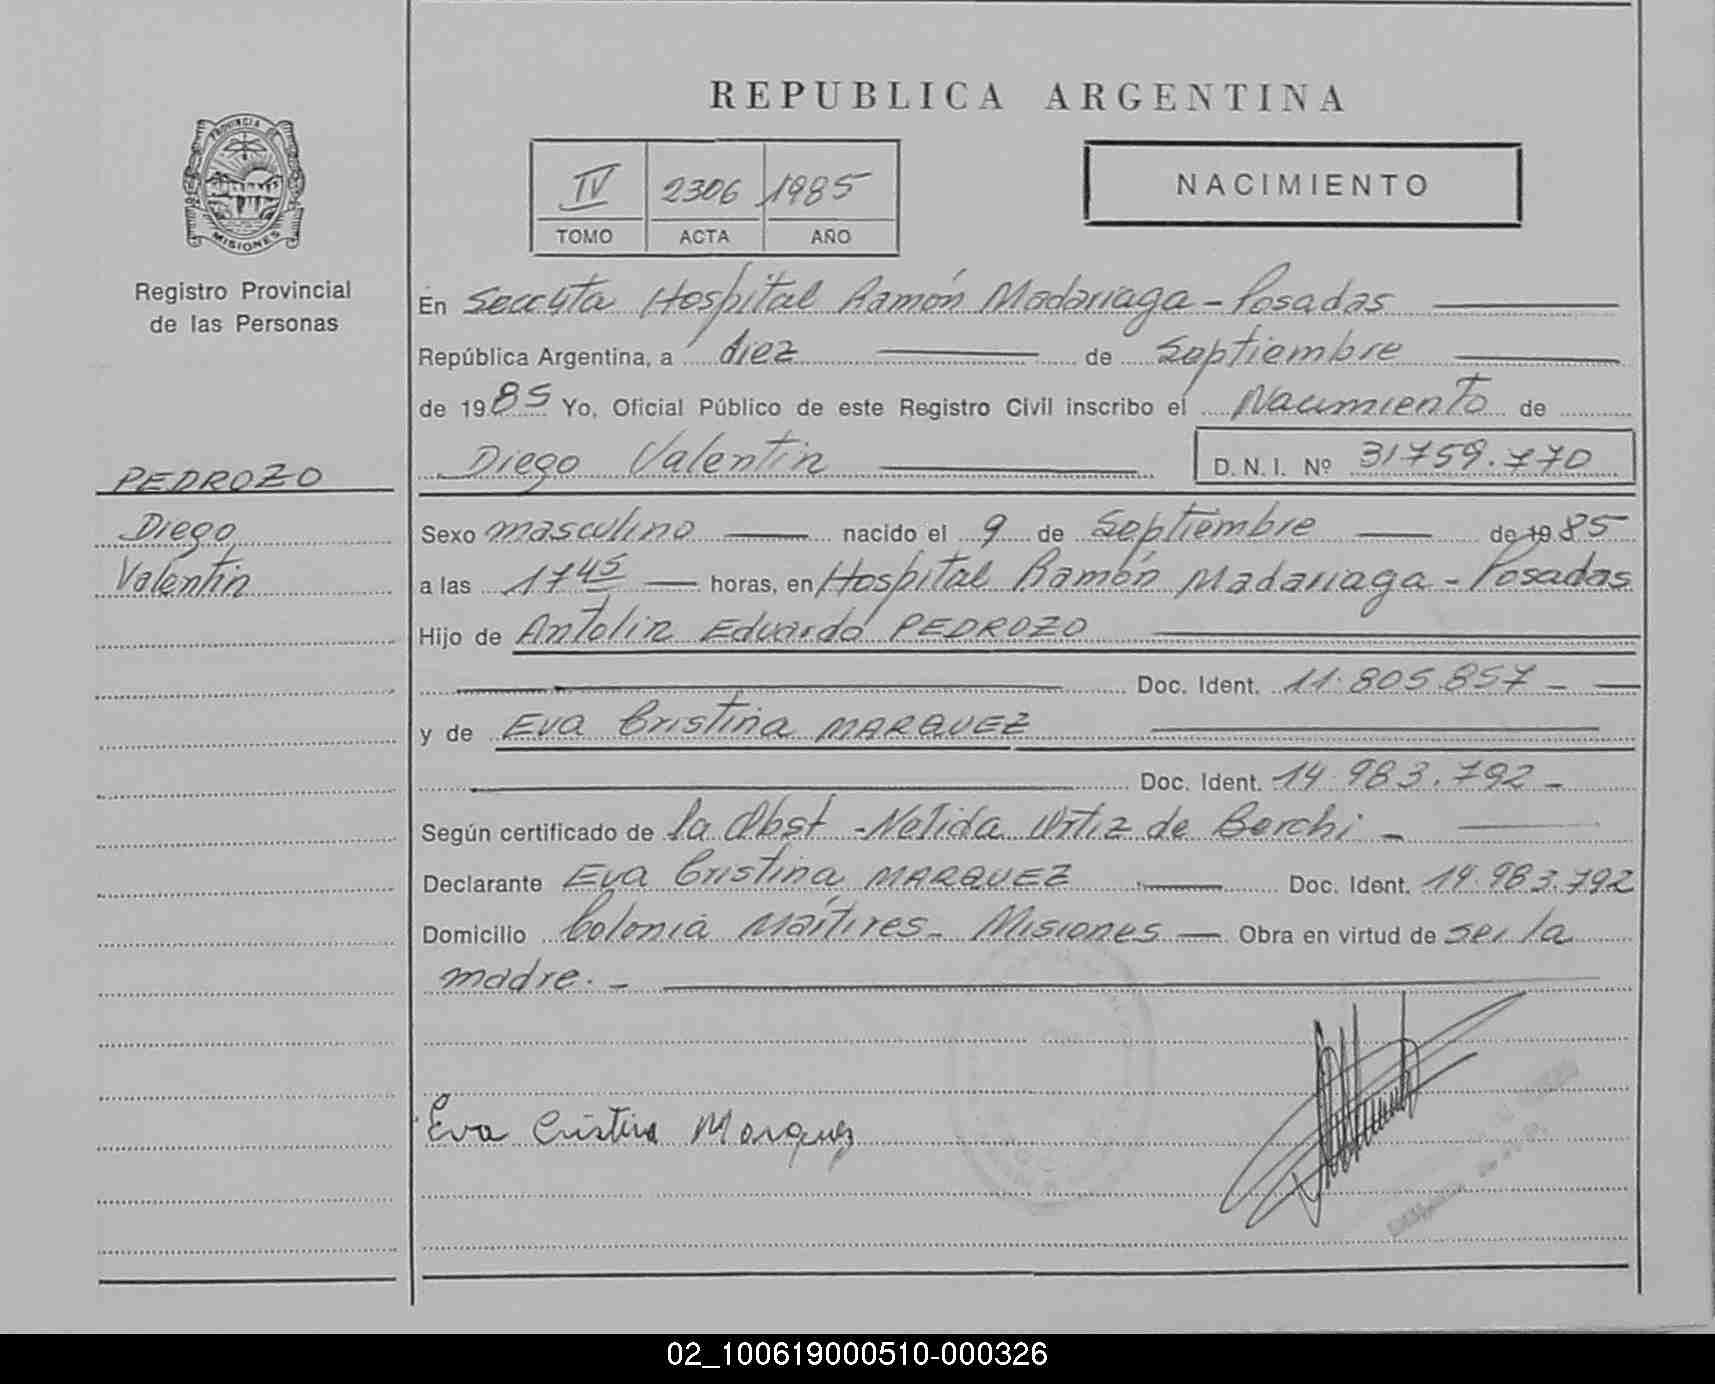 REPUBLICA ARGENTINA
PROVINCIA DE
MISIONES
Registro Provincial
de las Personas
IV 2306 1985
TOMO ACTA AÑO
NACIMIENTO
En Secc 4ta Hospital Ramón Madariaga - Posadas
República Argentina, a diez de Septiembre
de 1985 Yo, Oficial Público de este Registro Civil inscribo el Nacimiento de
Diego Valentin D. N. I. Nº 31759.770
PEDROZO
Diego
Valentin
Sexo masculino nacido el 9 de Septiembre de 1985
a las 17 45 horas, en Hospital Ramón Madariaga - Posadas
Hijo de Antolin Eduardo PEDROZO
Doc. Ident. 11.805.857 -
y de Eva Cristina MARQUEZ
Doc. Ident. 14.983.792 -
Según certificado de la Obst - Nelida Ortiz de Berchi -
Declarante Eva Cristina MARQUEZ Doc. Ident. 14.983.792
Domicilio Colonia Mártires - Misiones - Obra en virtud de ser la
madre. -
Eva Cristina Marquez
02_100619000510-000326